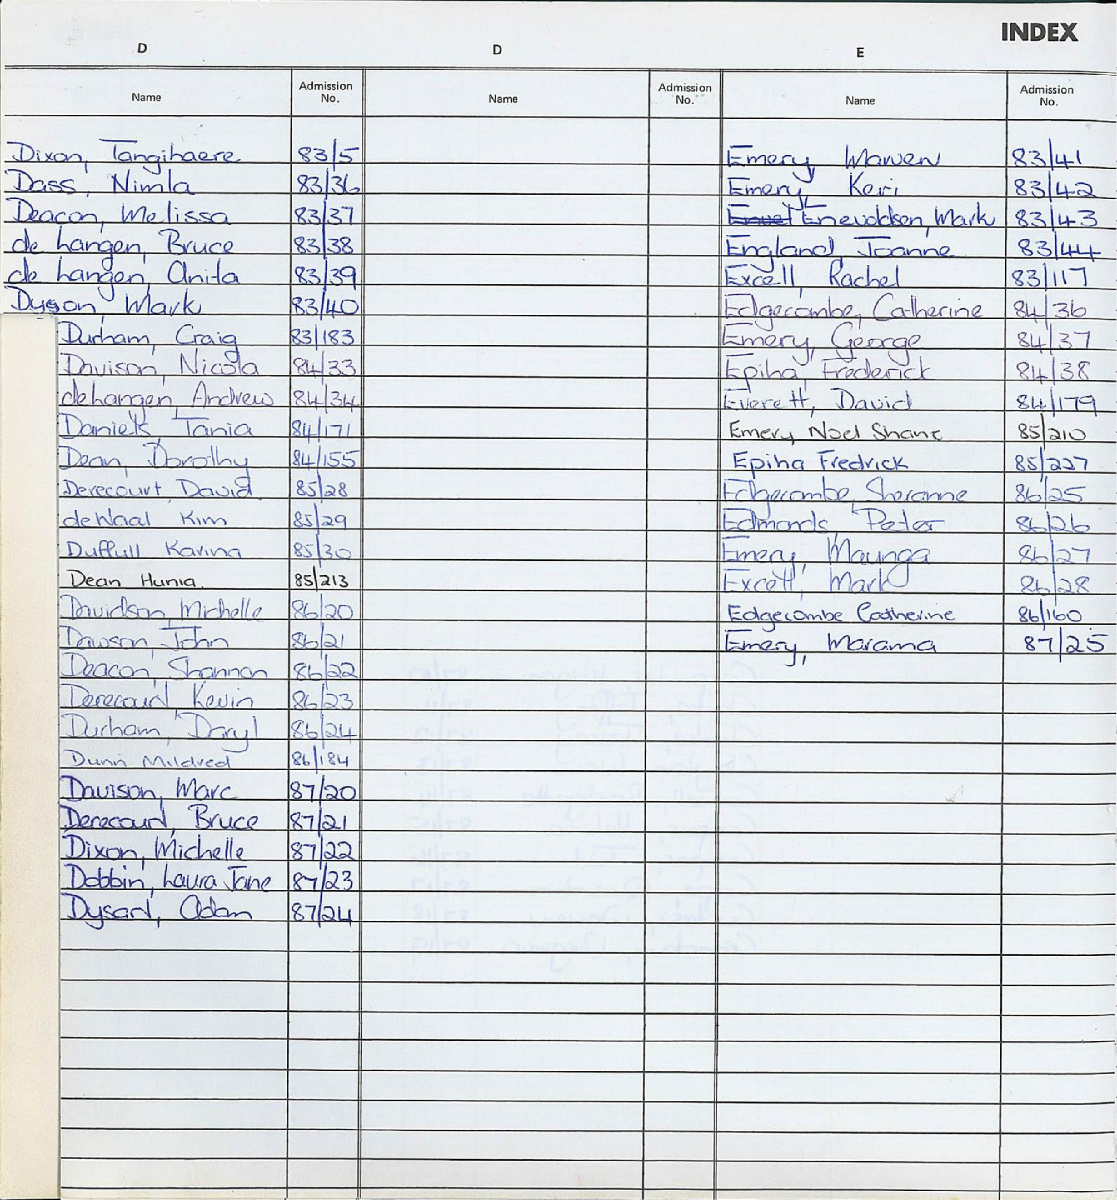 INDEX
D
Name Admission No.
Dixon, Tangihaere 83/5
Dass, Nimla 83/36
Deacon, Melissa 83/37
de hangen, Bruce 83/38
de hangen, Anita 83/39
Dyson, Mark 83/40
Durham, Craig 83/183
Davison, Nicola 84/33
de hangen, Andrew 84/34
Daniels, Tania 84/171
Dean, Dorothy 84/155
Derecourt, David 85/28
deWaal Kim 85/29
Duffull Karina 85/30
Dean Hunia 85/213
Davidson, Michelle 86/20
Dawson, John 86/21
Deacon, Shannon 86/22
Derecourt, Kevin 86/23
Durham, Daryl 86/24
Dunn Mildred 86/184
Davison, Marc 87/20
Derecourt, Bruce 87/21
Dixon, Michelle 87/22
Dobbin, Laura Jane 87/23
Dysart, Adam 87/24
D
Name Admission No.
E
Name Admission No.
Emery, 83/41
Emery, Keri 83/42
Enevoldsen, Mark 83/43
England, Joanne 83/44
Excell, Rachel 83/117
Edgecombe, Catherine 84/36
Emery, George 84/37
Epiha, Frederick 84/38
Everett, David 84/179
Emery, Noel Shane 85/210
Epiha Fredrick 85/227
Edgecombe, Sheranne 86/25
Edmonds, Peter 86/26
Emery, Maunga 86/27
Excell, Mark 86/28
Edgecombe Catherine 86/160
Emery, Marama 87/25